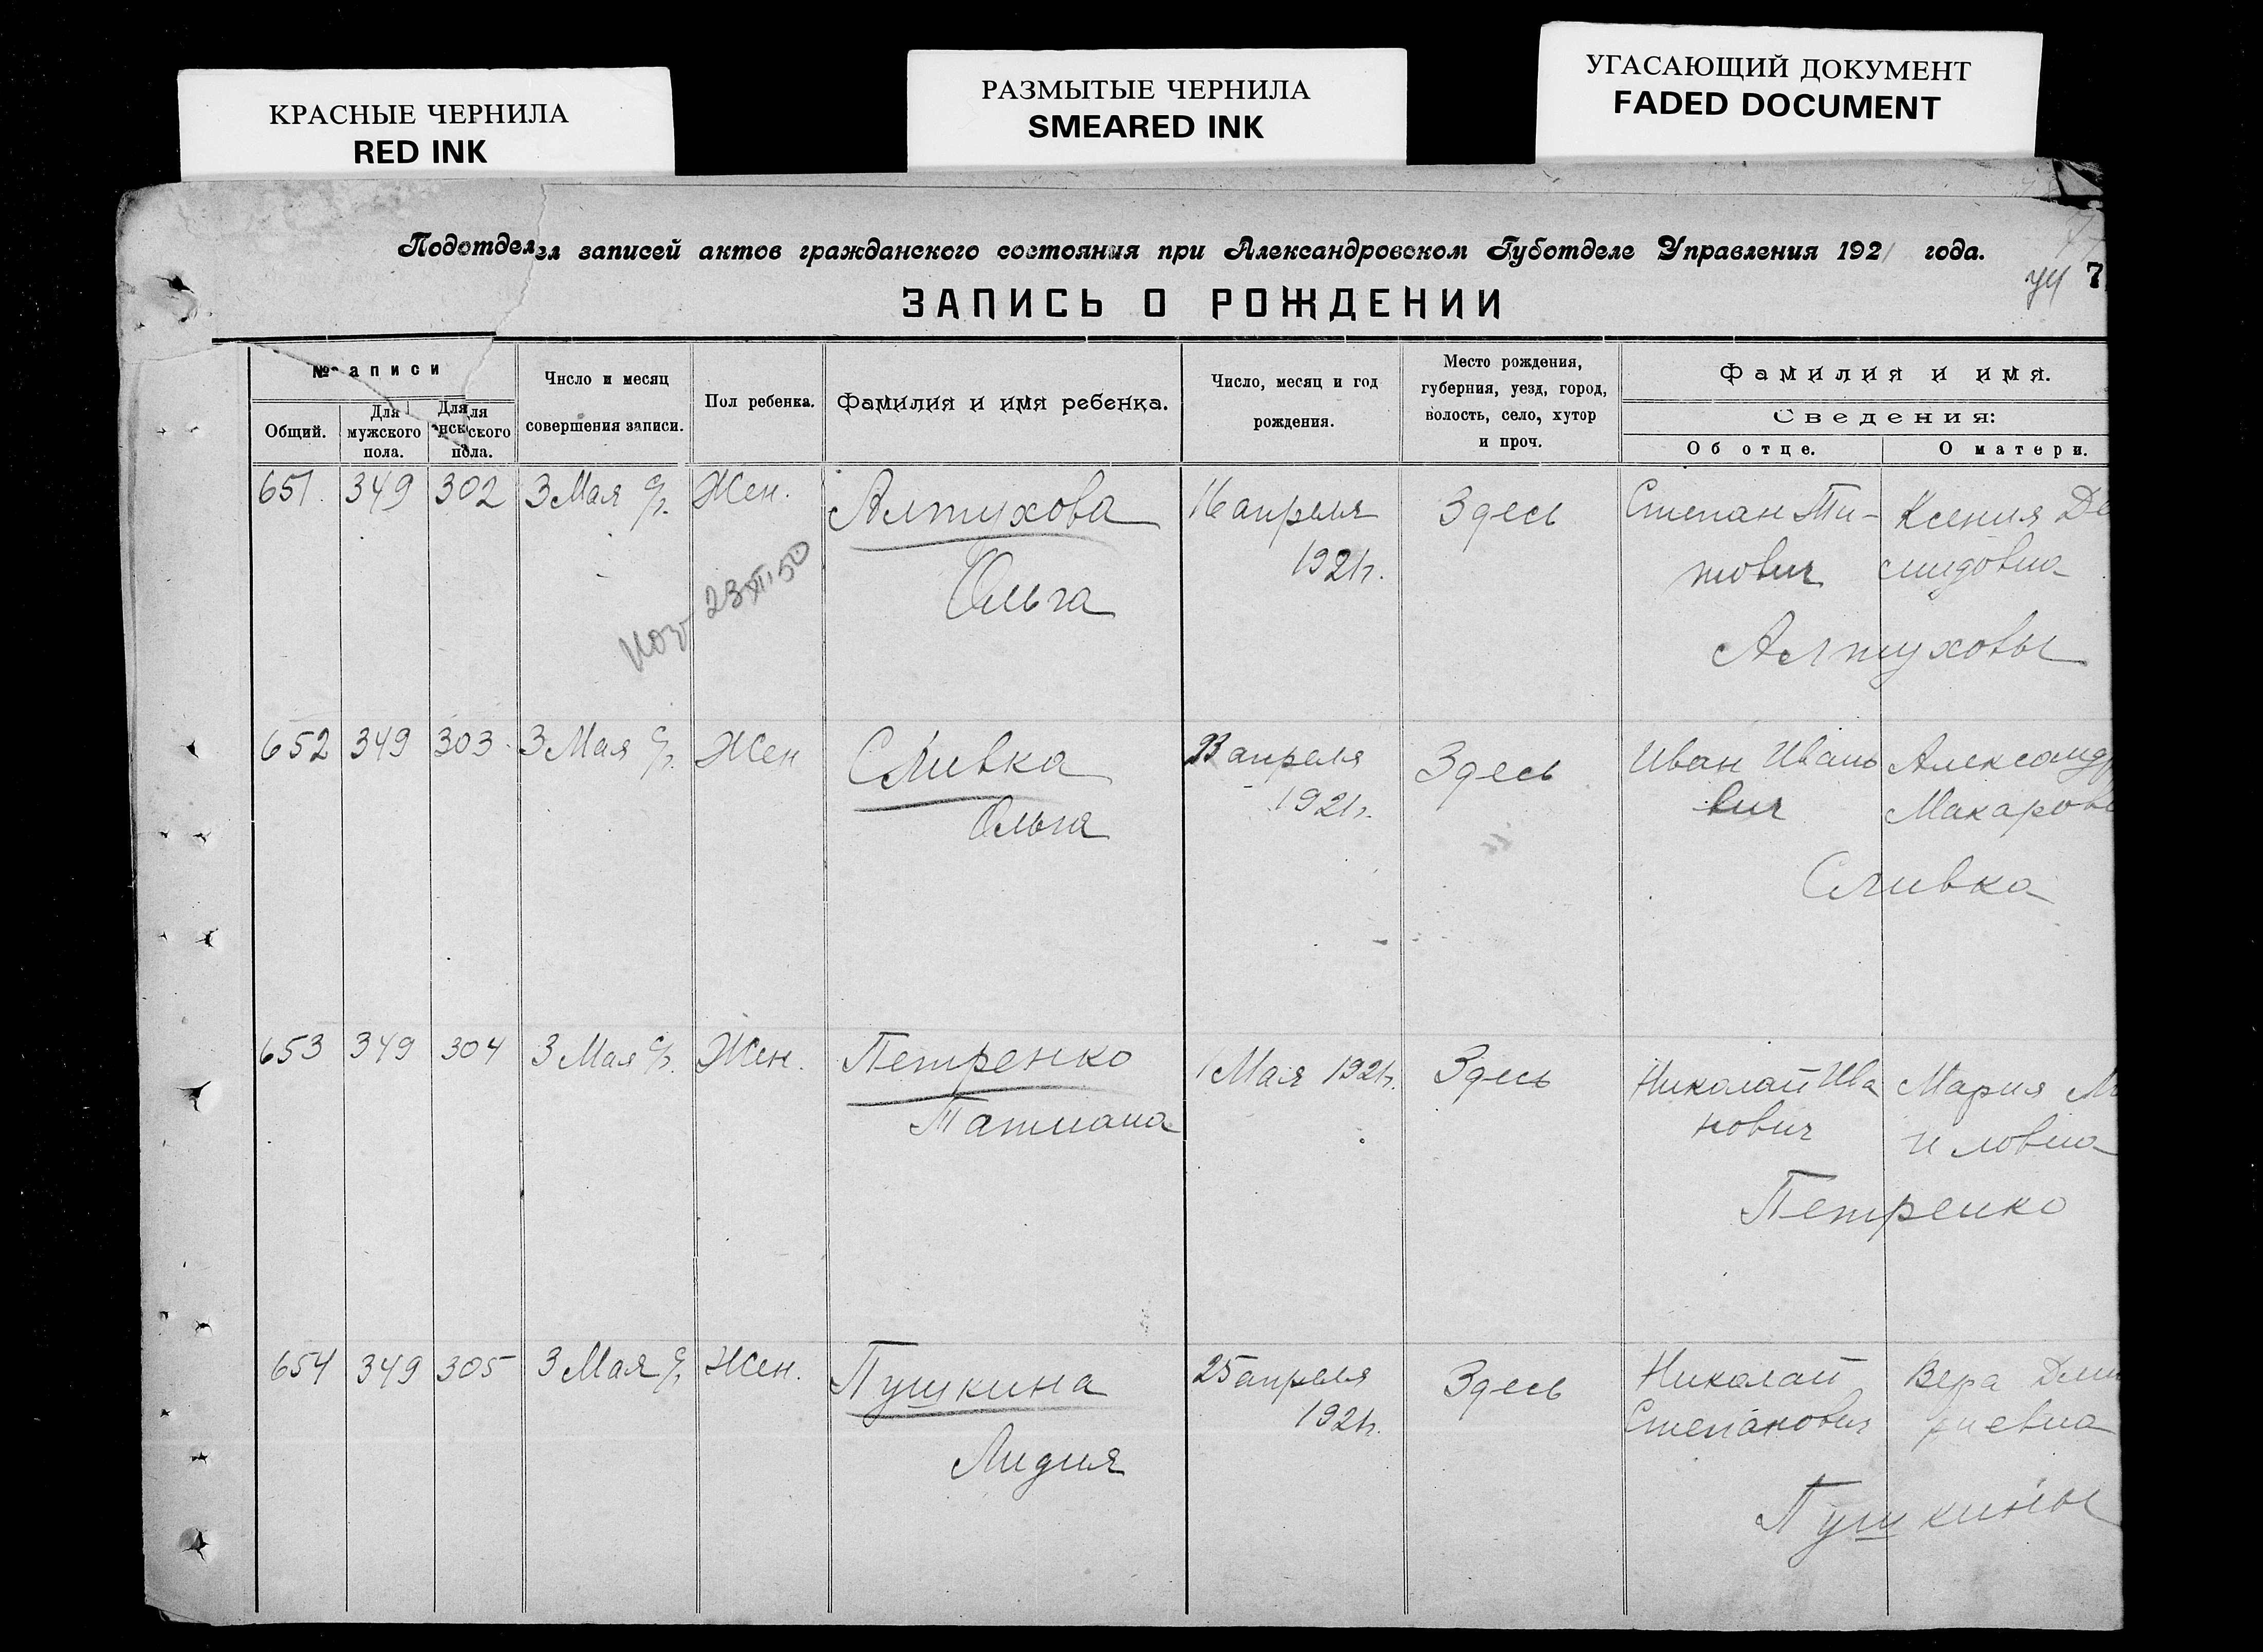 КРАСНЫЕ ЧЕРНИЛА
RED INK
РАЗМЫТЫЕ ЧЕРНИЛА
SMEARED INK
УГАСАЮЩИЙ ДОКУМЕНТ
FADED DOCUMENT
Подотдел записей актов гражданского состояния при Александровском Губотделе Управления 1921 года.
7
ЗАПИСЬ О РОЖДЕНИИ
№ аписи
Общий.
Для мужского пола.
Для нск ского пола.
Число и месяц совершения записи.
Пол ребенка.
Фамилия и имя ребенка.
Число, месяц и год рождения.
Место рождения, губерния, уезд, город, волость, село, хутор и проч.
Фамилия и имя.
Сведения:
Об отце.
О матери.
651. 349 302 3 Мая Жен. Алтухова 16 апреля Здесь Степан Ти- Ксения Де
1921 г. тович мидовна
Ольга
23 XII 50
Алтуховы
652 349 303 3 Мая Жен Сливка 23 апреля Здесь Иван Ивано Александр
1921 г. вич Макаров
Ольга
Сливка
653 349 304 3 Мая Жен. Петренко 1 Мая 1921 г. Здесь Николай Ива Мария М
Татиана нович иловна
Петренко
654 349 305 3 Мая Жен. Пушкина 25 апреля Здесь Николай Вера Дми
1921 г. Степанович риевна
Лидия
Пушкины